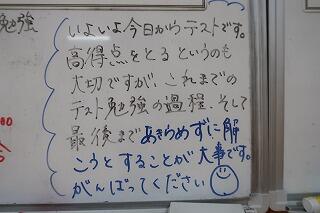 勉強
いよいよ今日からテストです。
高得点をとるというのも
大切ですが、これまでの
テスト勉強の過程、そして
最後まであきらめずに解
こうとすることが大事です。
がんばってください